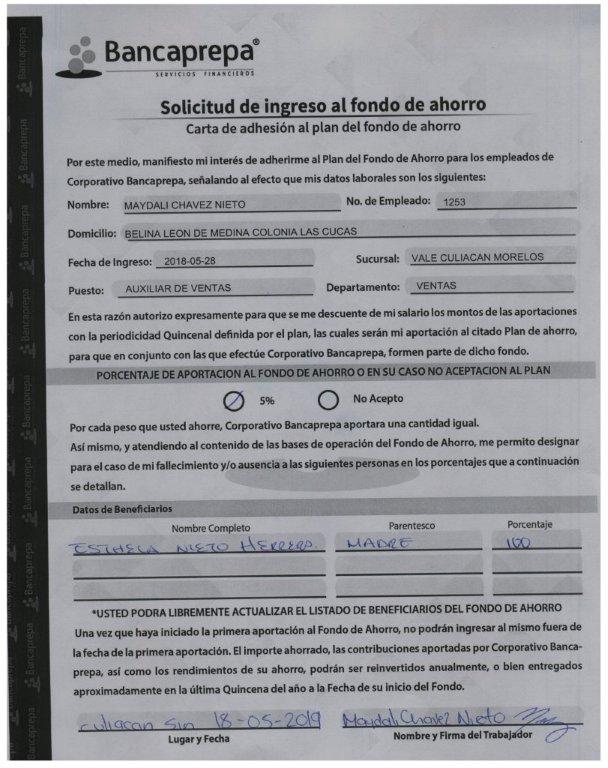 Bancaprepa®
SERVICIOS FINANCIEROS
Solicitud de ingreso al fondo de ahorro
Carta de adhesión al plan del fondo de ahorro
Por este medio, manifiesto mi interés de adherirme al Plan del Fondo de Ahorro para los empleados de
Corporativo Bancaprepa, señalando al efecto que mis datos laborales son los siguientes:
Nombre: MAYDALI CHAVEZ NIETO No. de Empleado: 1253
Domicilio: BELINA LEON DE MEDINA COLONIA LAS CUCAS
Fecha de Ingreso: 2018-05-28 Sucursal: VALE CULIACAN MORELOS
Puesto: AUXILIAR DE VENTAS Departamento: VENTAS
En esta razón autorizo expresamente para que se me descuente de mi salario los montos de las aportaciones
con la periodicidad Quincenal definida por el plan, las cuales serán mi aportación al citado Plan de ahorro,
para que en conjunto con las que efectúe Corporativo Bancaprepa, formen parte de dicho fondo.
PORCENTAJE DE APORTACION AL FONDO DE AHORRO O EN SU CASO NO ACEPTACION AL PLAN
5% No Acepto
Por cada peso que usted ahorre, Corporativo Bancaprepa aportara una cantidad igual.
Así mismo, y atendiendo al contenido de las bases de operación del Fondo de Ahorro, me permito designar
para el caso de mi fallecimiento y/o ausencia a las siguientes personas en los porcentajes que a continuación
se detallan.
Datos de Beneficiarios
Nombre Completo Parentesco Porcentaje
ESTHELA NIETO HERRERO. MADRE 100
*USTED PODRA LIBREMENTE ACTUALIZAR EL LISTADO DE BENEFICIARIOS DEL FONDO DE AHORRO
Una vez que haya iniciado la primera aportación al Fondo de Ahorro, no podrán ingresar al mismo fuera de
la fecha de la primera aportación. El importe ahorrado, las contribuciones aportadas por Corporativo Banca-
prepa, así como los rendimientos de su ahorro, podrán ser reinvertidos anualmente, o bien entregados
aproximadamente en la última Quincena del año a la Fecha de su inicio del Fondo.
Culiacan Sin 18-05-2019 Maydali Chavez Nieto
Lugar y Fecha Nombre y Firma del Trabajador